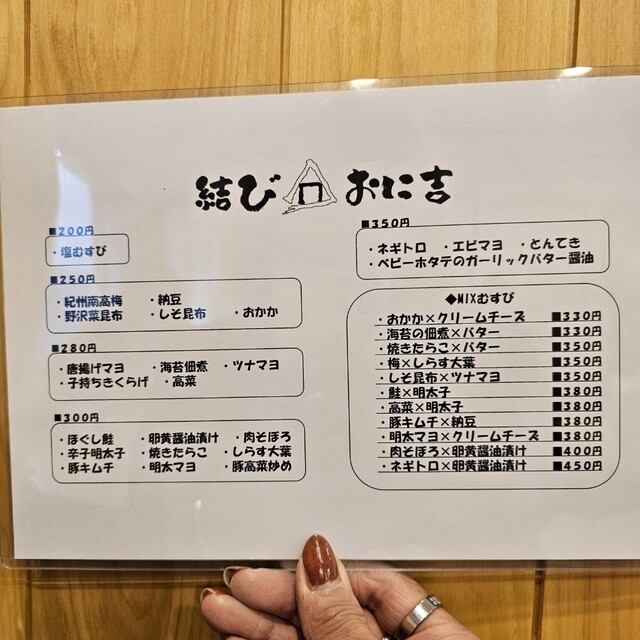 結び おに吉
■200円
・塩むすび
■250円
・紀州南高梅 ・納豆
・野沢菜昆布 ・しそ昆布 ・おかか
■280円
・唐揚げマヨ ・海苔佃煮 ・ツナマヨ
・子持ちきくらげ ・高菜
■300円
・ほぐし鮭 ・卵黄醤油漬け ・肉そぼろ
・辛子明太子 ・焼きたらこ ・しらす大葉
・豚キムチ ・明太マヨ ・豚高菜炒め
■350円
・ネギトロ ・エビマヨ ・とんてき
・ベビーホタテのガーリックバター醤油
◆MIXむすび
・おかか×クリームチーズ ■330円
・海苔の佃煮×バター ■330円
・焼きたらこ×バター ■350円
・梅×しらす大葉 ■350円
・しそ昆布×ツナマヨ ■350円
・鮭×明太子 ■380円
・高菜×明太子 ■380円
・豚キムチ×納豆 ■380円
・明太マヨ×クリームチーズ ■380円
・肉そぼろ×卵黄醤油漬け ■400円
・ネギトロ×卵黄醤油漬け ■450円